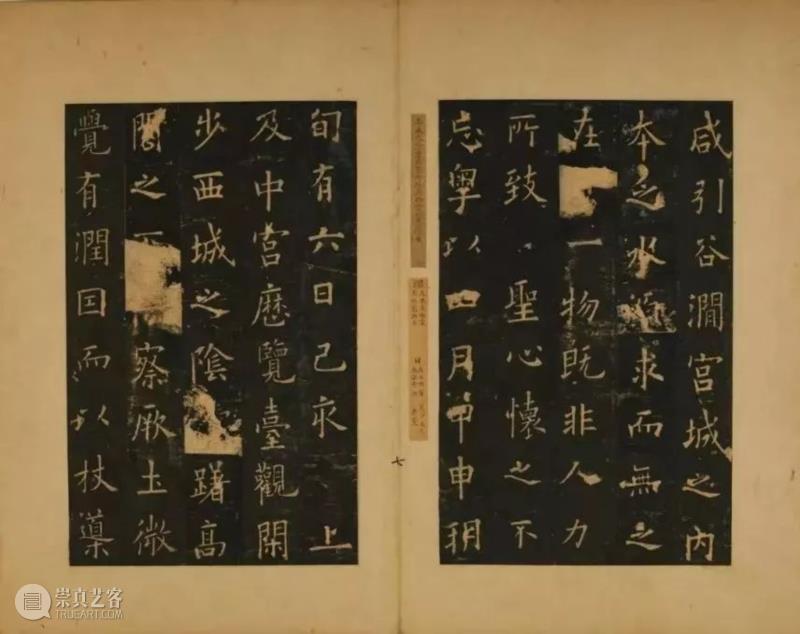 咸引谷澗宮城之內
本乏水源求而無之
在一物既非人力
所致聖心懷之不
忘粵以四月甲申朔
旬有六日己亥上
及中宮歷覽臺觀閑
步西城之陰躇高
閣之下察厥土微
覺有潤因而以杖導
七
崇真艺客
TRUEART.COM